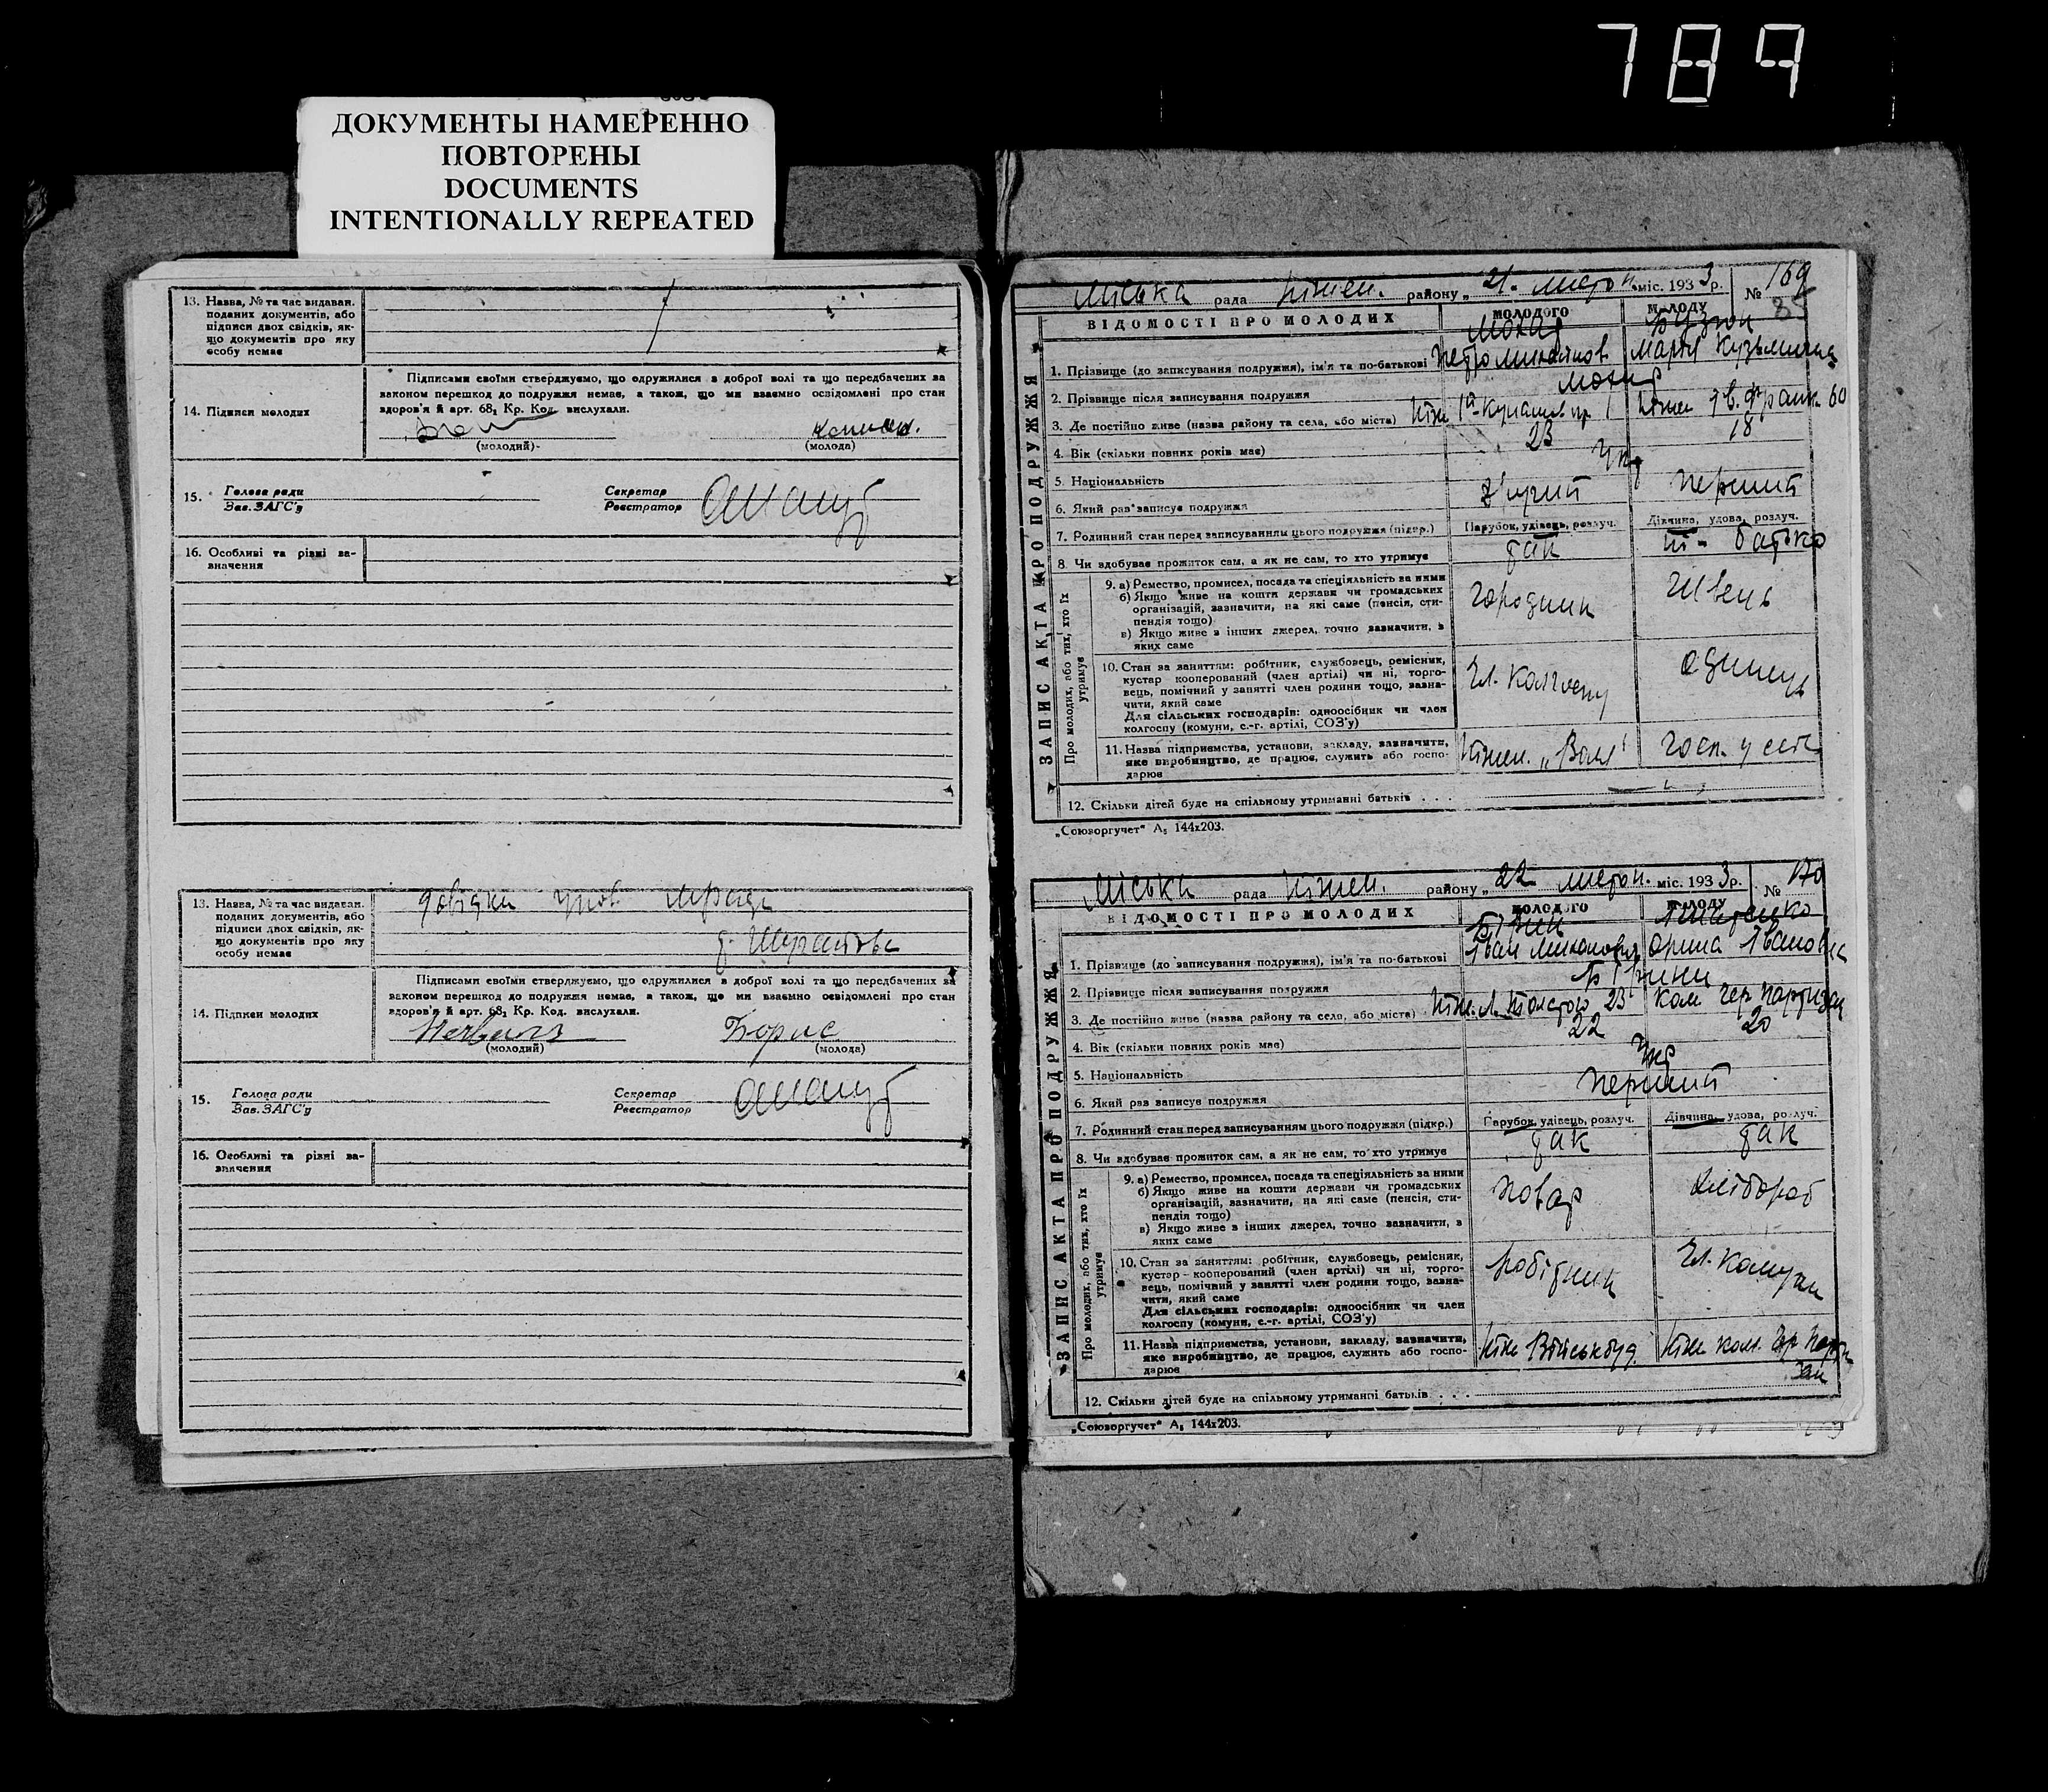 789
ДОКУМЕНТЫ НАМЕРЕННО
ПОВТОРЕНЫ
DOCUMENTS
INTENTIONALLY REPEATED
13. Назва, № та час видаван.
поданих документів, або
підписи двох свідків, як-
що документів про яку
особу немає
14. Підписи молодих
Підписами своїми стверджуємо, що одружилися в доброї волі та що передбачених за
законом перешкод до подружжя немає, а також, що ми взаємно освідомлені про стан
здоров'я й арт. 68₁ Кр. Код. вислухали.
(молодий) (молода)
15. Голова ради Секретар
Зав. ЗАГС'у Реєстратор
16. Особливі та різні за-
значення
13. Назва, № та час видаван.
поданих документів, або
підписи двох свідків, як-
що документів про яку
особу немає
довідки
14. Підписи молодих
Підписами своїми стверджуємо, що одружилися в доброї волі та що передбачених за
законом перешкод до подружжя немає, а також, що ми взаємно освідомлені про стан
здоров'я й арт. 68₁ Кр. Код. вислухали.
Борис
(молодий) (молода)
15. Голова ради Секретар
Зав. ЗАГС'у Реєстратор
16. Особливі та різні за-
значення
ЗАПИС АКТА ПРО ПОДРУЖЖЯ
Міська рада Ніжен. району „21. листоп. міс. 1933 р. № 169
85
ВІДОМОСТІ ПРО МОЛОДИХ МОЛОДОГО МОЛОДУ
1. Прізвище (до записування подружжя), ім'я та по-батькові Марія Кузьмівна
2. Прізвище після записування подружжя
3. Де постійно живе (назва району та села, або міста) Ніжен Ів. Франк. 60
4. Вік (скільки повних років має) 23 18
5. Національність Укр
6. Який раз записує подружжя другий перший
7. Родинний стан перед записуванням цього подружжя (підкр.) Парубок, удівець, розлуч. Дівчина, удова, розлуч.
8. Чи здобуває прожиток сам, а як не сам, то хто утримує так ні - батько
Про молодих, або тих, хто їх утримує
9. а) Ремество, промисел, посада та спеціяльність за ними
б) Якщо живе на кошти держави чи громадських
організацій, зазначити, на які саме (пенсія, сти-
пендія тощо)
в) Якщо живе з інших джерел, точно зазначити, з
яких саме
городник Швець
10. Стан за заняттям: робітник, службовець, ремісник,
кустар кооперований (член артілі) чи ні, торго-
вець, помічний у занятті член родини тощо, зазна-
чити, який саме
Для сільських господарів: одноосібник чи член
колгоспу (комуни, с.-г. артілі, СОЗ'у)
Чл. Колгоспу одинець
11. Назва підприємства, установи, закладу, зазначити,
яке виробництво, де працює, служить або госпо-
дарює
Ніжен. „Воля" госп. у селі
12. Скільки дітей буде на спільному утриманні батьків . . .
„Союзоргучет" А₅ 144х203.
ЗАПИС АКТА ПРО ПОДРУЖЖЯ
Міська рада Ніжен. району „22 листоп. міс. 1933 р. № 170
ВІДОМОСТІ ПРО МОЛОДИХ МОЛОДОГО МОЛОДУ
1. Прізвище (до записування подружжя), ім'я та по-батькові Іван Миколович Орина Івановна
2. Прізвище після записування подружжя
3. Де постійно живе (назва району та села, або міста) Ніж. Л. Толстого 23 Ком Чер Партизан
4. Вік (скільки повних років має) 22 20
5. Національність Укр
6. Який раз записує подружжя перший
7. Родинний стан перед записуванням цього подружжя (підкр.) Парубок, удівець, розлуч. Дівчина, удова, розлуч.
8. Чи здобуває прожиток сам, а як не сам, то хто утримує так так
Про молодих, або тих, хто їх утримує
9. а) Ремество, промисел, посада та спеціяльність за ними
б) Якщо живе на кошти держави чи громадських
організацій, зазначити, на які саме (пенсія, сти-
пендія тощо)
в) Якщо живе з інших джерел, точно зазначити, з
яких саме
повар хлібороб
10. Стан за заняттям: робітник, службовець, ремісник,
кустар - кооперований (член артілі) чи ні, торго-
вець, помічний у занятті член родини тощо, зазна-
чити, який саме
Для сільських господарів: одноосібник чи член
колгоспу (комуни, с.-г. артілі, СОЗ'у)
робітник Чл. Комуни
11. Назва підприємства, установи, закладу, зазначити,
яке виробництво, де працює, служить або госпо-
дарює
Ніж Військбуд. Ніж ком. Чер Парти
зан
12. Скільки дітей буде на спільному утриманні батьків . . .
„Союзоргучет" А₅ 144х203.